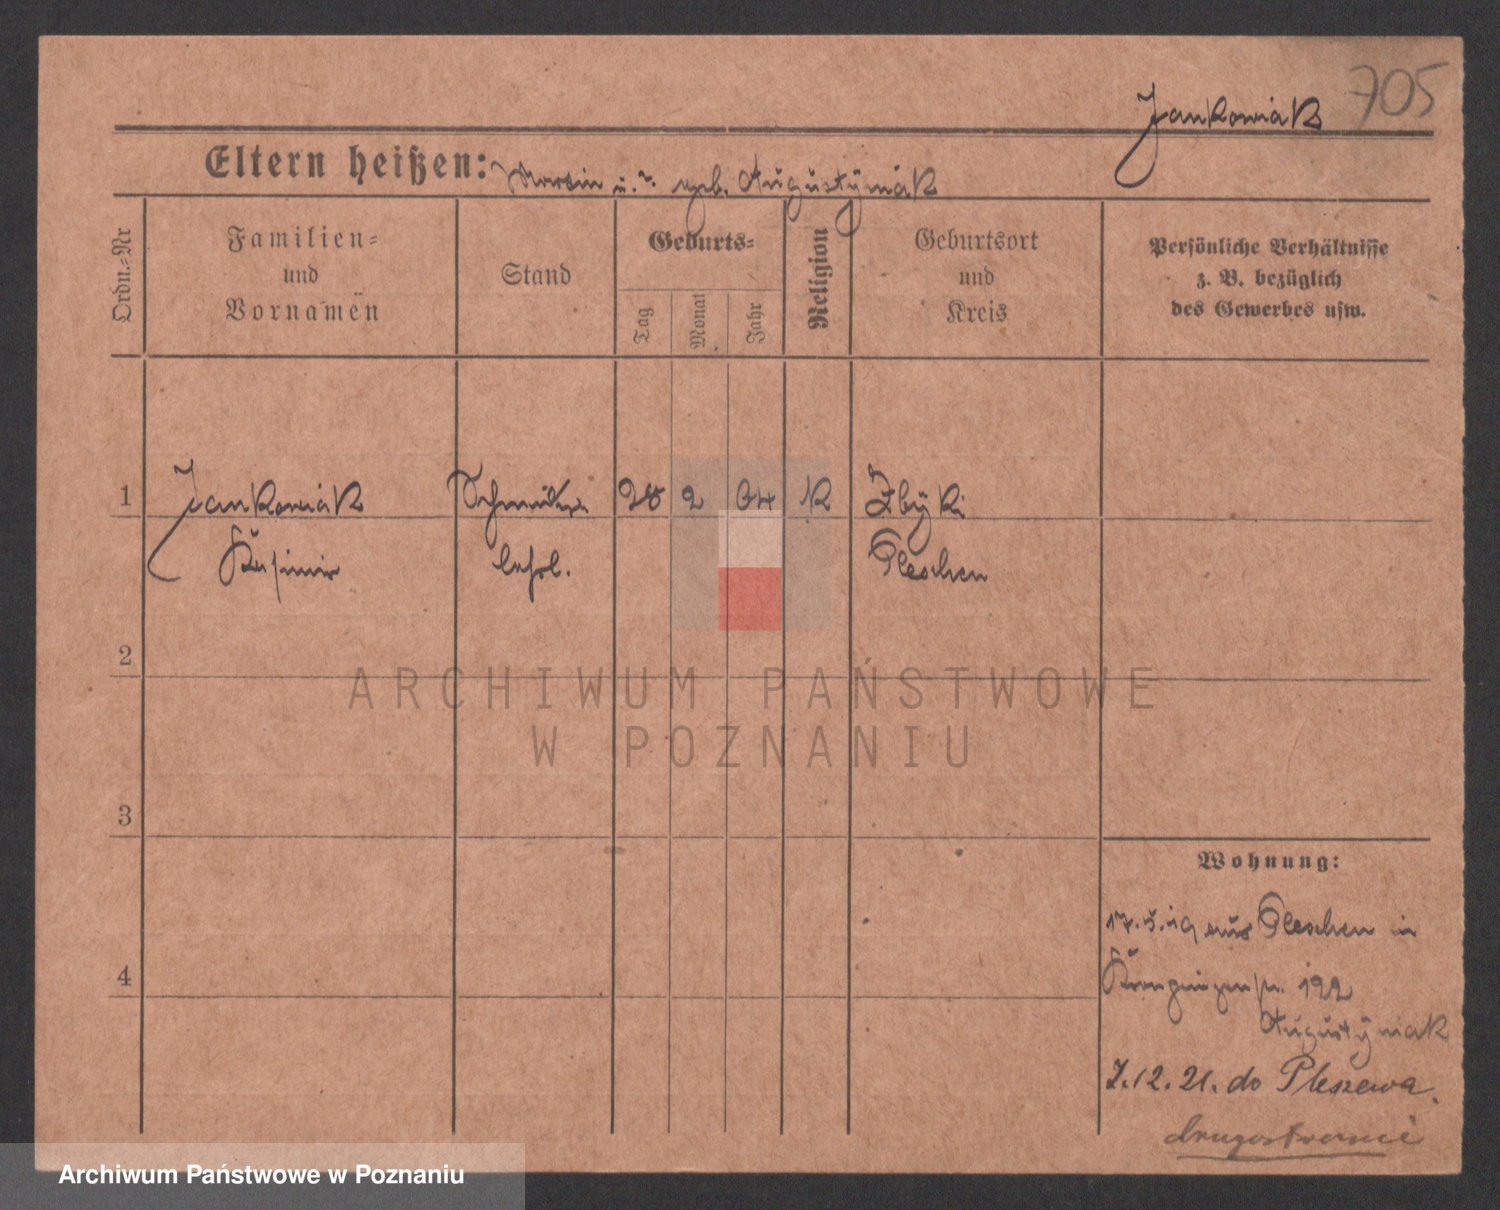 705
Jankowiak
Eltern heißen: Martin u. geb. Augustyniak
Ordn.-Nr
Familien-
und
Vornamen
Stand
Geburts-
Tag
Monat
Jahr
Religion
Geburtsort
und
Kreis
Persönliche Verhältnisse
z. B. bezüglich
des Gewerbes usw.
1
Jankowiak
Kasimir
lehrl.
28
2
04
K
Zbyki
Pleschen
2
3
4
ARCHIWUM PAŃSTWOWE
W POZNANIU
Wohnung:
17.5.19 aus Pleschen in
122
Augustyniak
7.12.21. do Pleszewa.
Archiwum Państwowe w Poznaniu